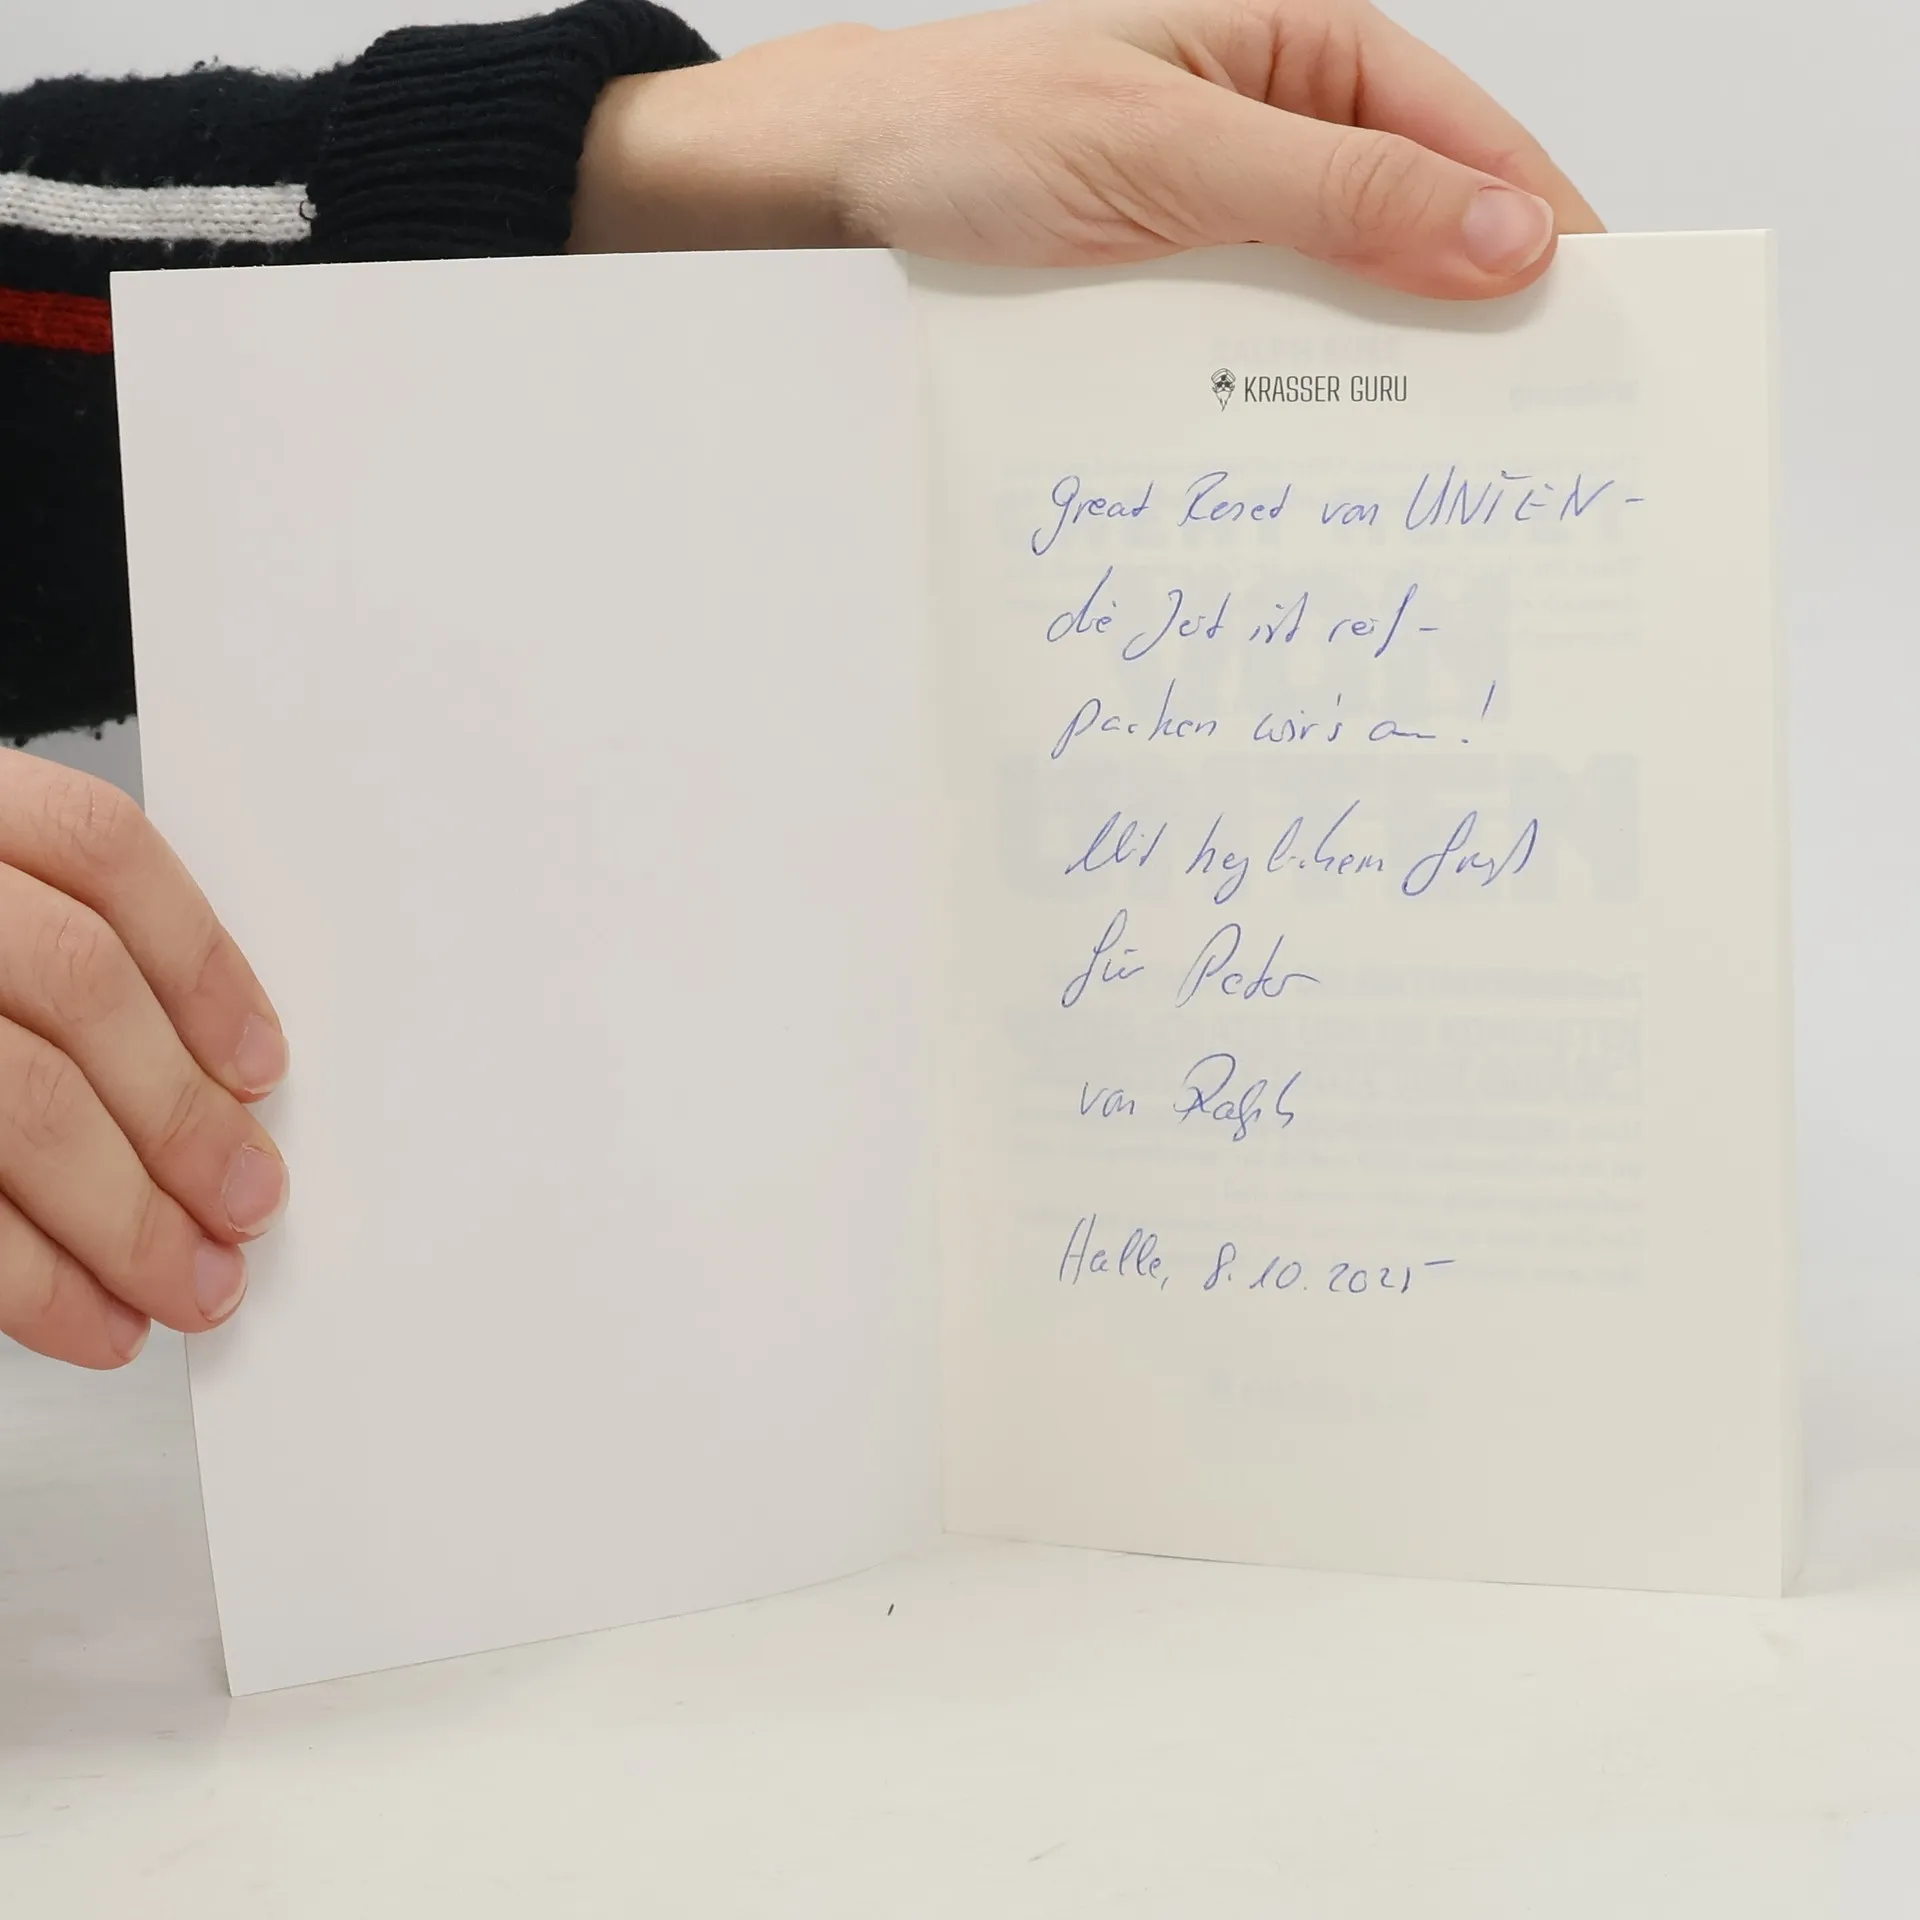 KRASSER GURU
Great Reset von UNTEN -
die Zeit ist reif -
packen wir's an!
Mit herzlichem Gruß
für Peter
von Ralph
Halle, 8.10.2021